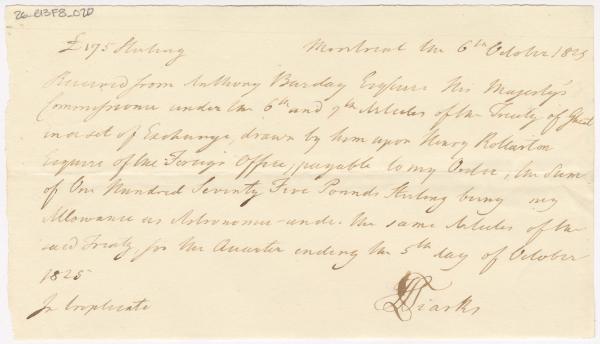 26-B13F8_020
£175 Sterling Montreal the 6th October 1825
Received from Anthony Barclay Esquire His Majesty's
Commissioner under the 6th and 7th Articles of the Treaty of Ghent
in a set of Exchange, drawn by him upon Henry Rolleston
Esquire of the Foreign Office, payable to my Order, the Sum
of One Hundred Seventy Five Pounds Sterling being my
Allowance as Astronomer under the same Articles of the
said Treaty, for the Quarter ending the 5th day of October
1825
In triplicate Tiarks